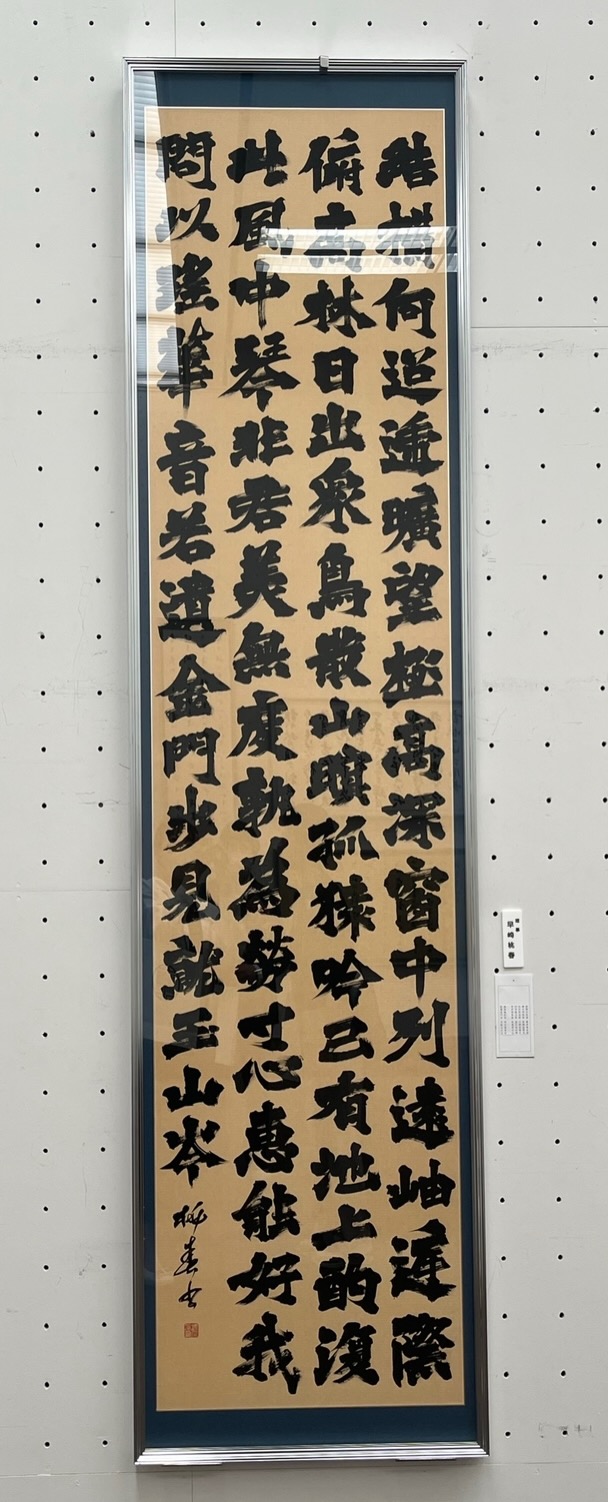 結構何迢遰曠望極高深窗中列遠岫庭際
俯喬林日出衆鳥散山暝孤猿吟已有池上酌復
此風中琴非君美無度孰為勞寸心惠能好我
問以瑤華音若遺金門步見就玉山岑 桃春書
早崎桃春